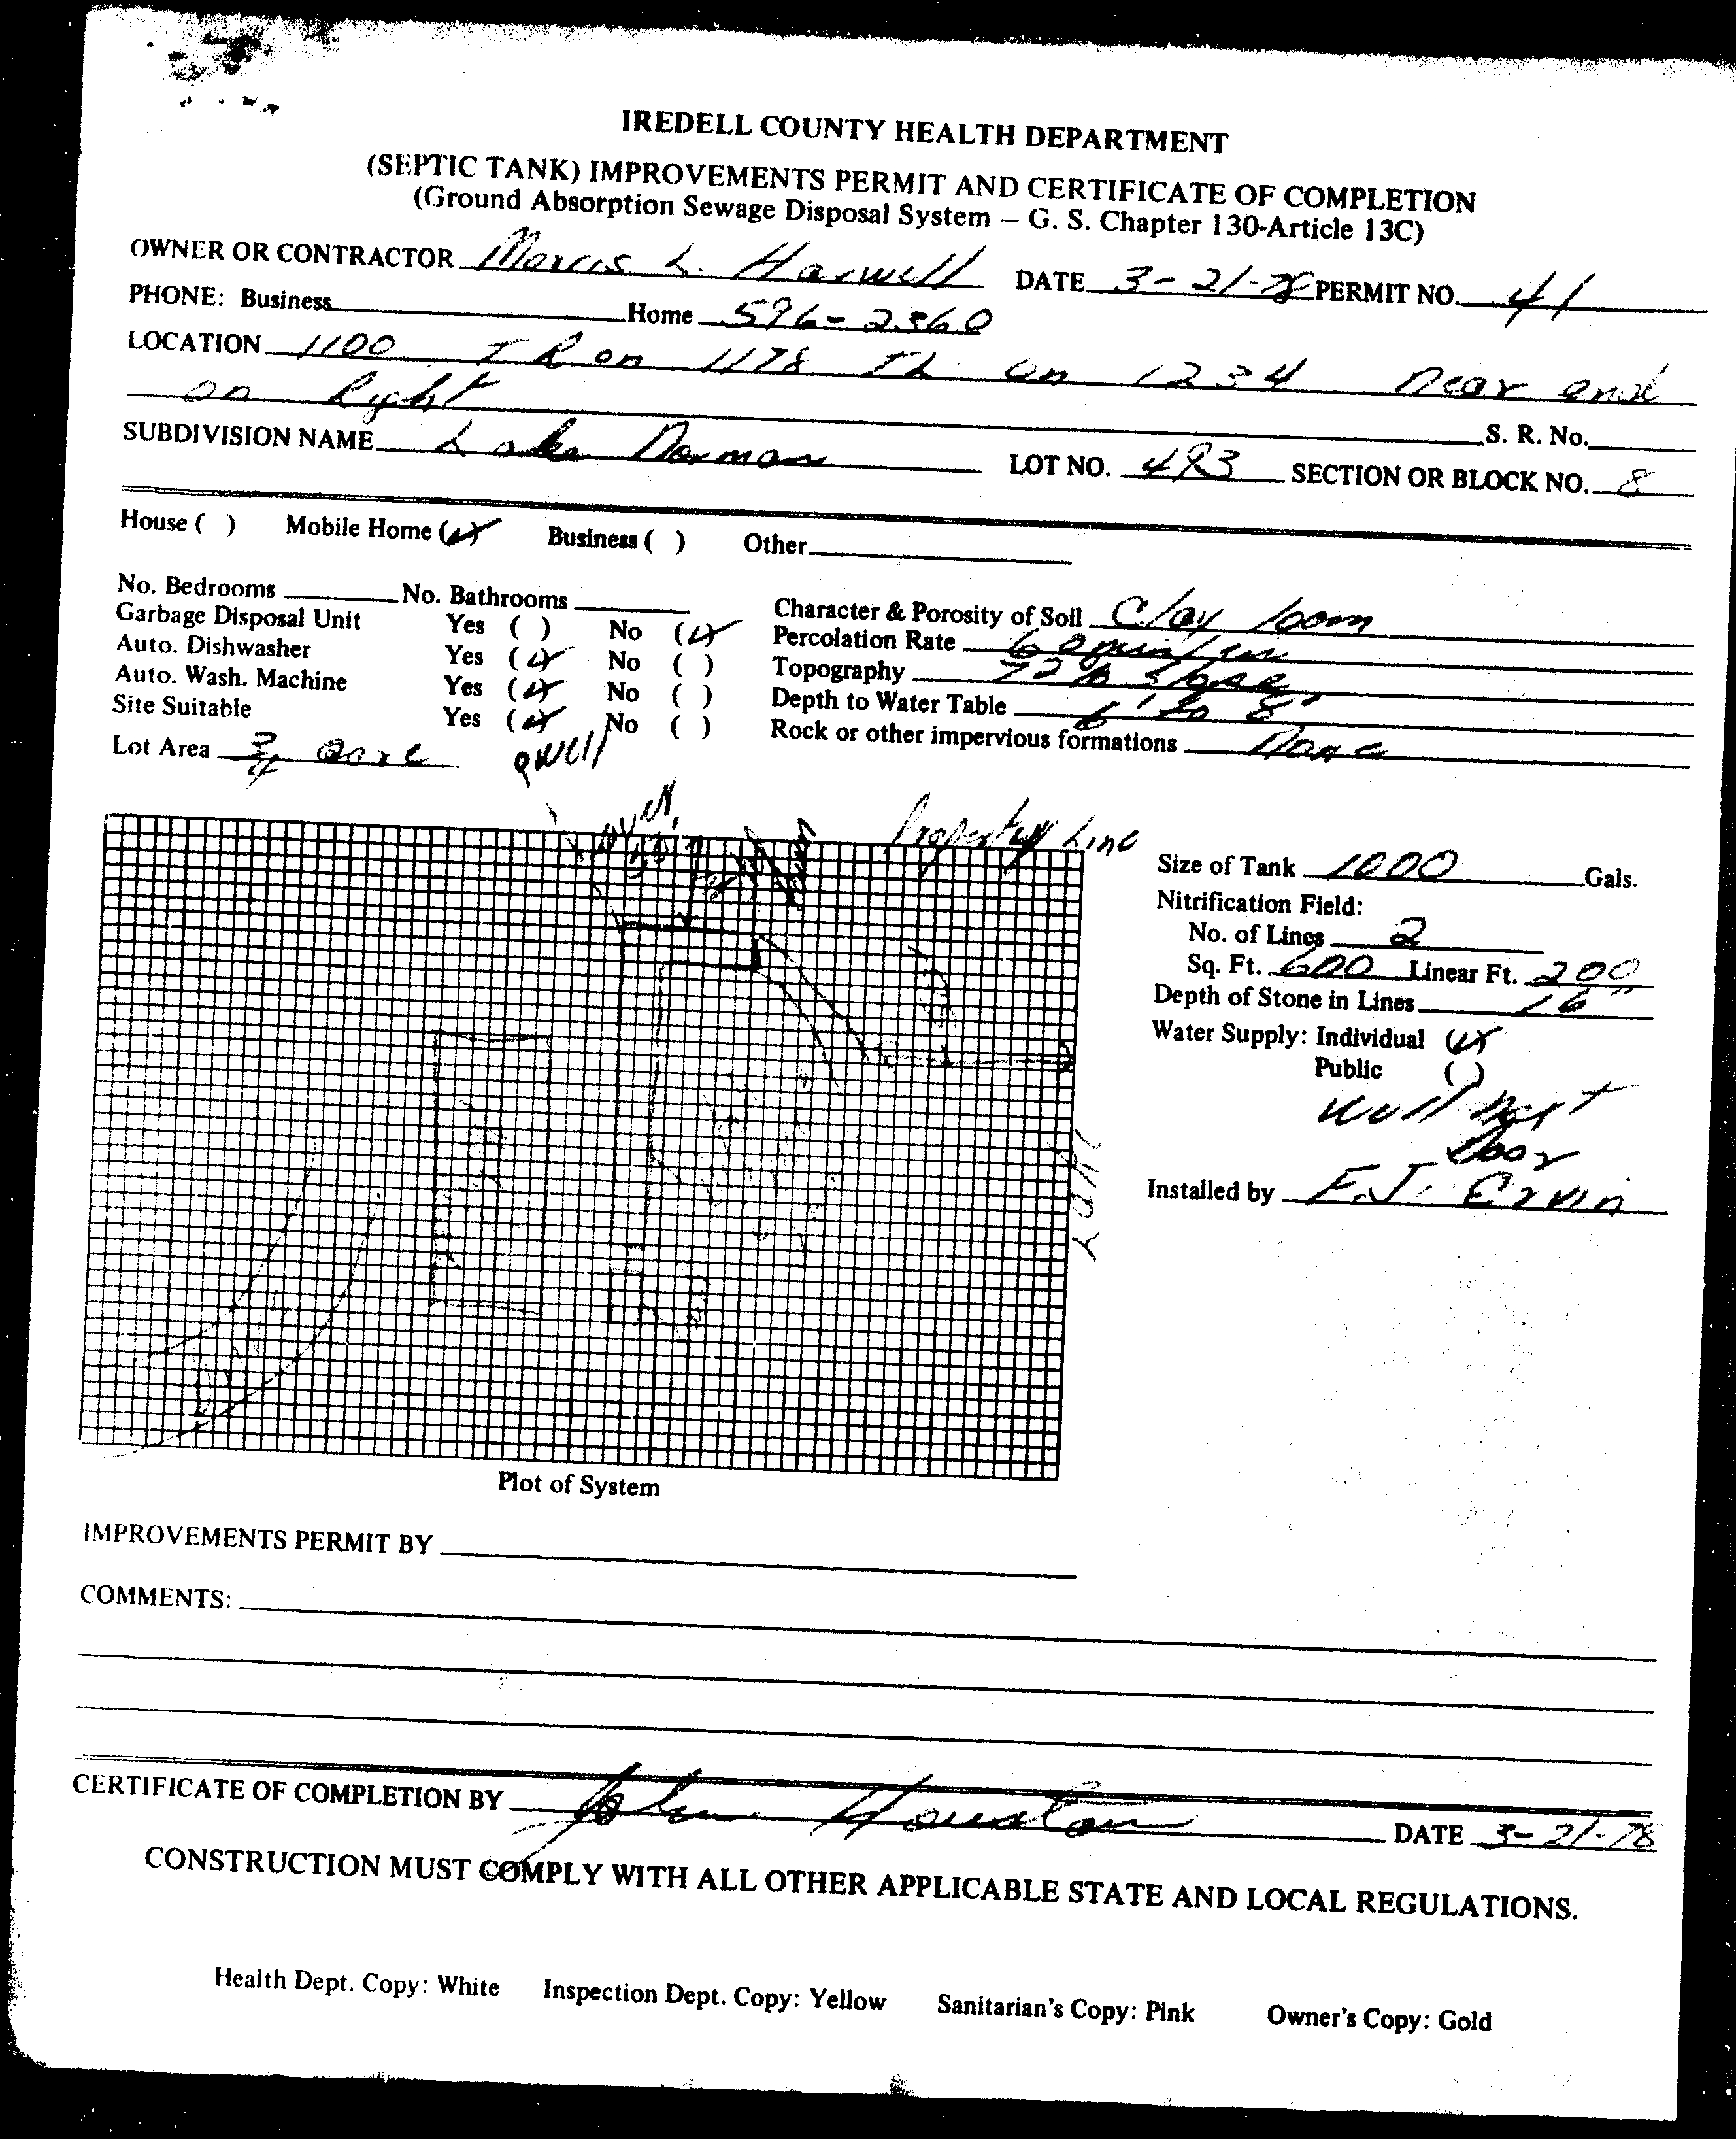 IREDELL COUNTY HEALTH DEPARTMENT
(SEPTIC TANK) IMPROVEMENTS PERMIT AND CERTIFICATE OF COMPLETION
(Ground Absorption Sewage Disposal System — G. S. Chapter 130-Article 13C)
OWNER OR CONTRACTOR L. Harwell DATE 3-21-78 PERMIT NO. 41
PHONE: Business Home 596-2360
LOCATION 1100 TR on 1178 TL on 1234 near end
on Right
S. R. No.
SUBDIVISION NAME Lake Norman LOT NO. SECTION OR BLOCK NO. 8
House ( ) Mobile Home (✓) Business ( ) Other
No. Bedrooms No. Bathrooms
Garbage Disposal Unit Yes ( ) No (✓)
Auto. Dishwasher Yes (✓) No ( )
Auto. Wash. Machine Yes (✓) No ( )
Site Suitable Yes (✓) No ( )
Lot Area 3/4 acre
well
Character & Porosity of Soil Clay loom
Percolation Rate 60 min/in
Topography slope
Depth to Water Table 6' to 8'
Rock or other impervious formations None
Property Line
Size of Tank 1000 Gals.
Nitrification Field:
No. of Lines 2
Sq. Ft. 600 Linear Ft. 200
Depth of Stone in Lines 16"
Water Supply: Individual (✓)
Public ( )
Well Next
Door
Installed by F.J. Ervin
Lake
Plot of System
IMPROVEMENTS PERMIT BY
COMMENTS:
CERTIFICATE OF COMPLETION BY John Houston DATE 3-21-78
CONSTRUCTION MUST COMPLY WITH ALL OTHER APPLICABLE STATE AND LOCAL REGULATIONS.
Health Dept. Copy: White Inspection Dept. Copy: Yellow Sanitarian's Copy: Pink Owner's Copy: Gold